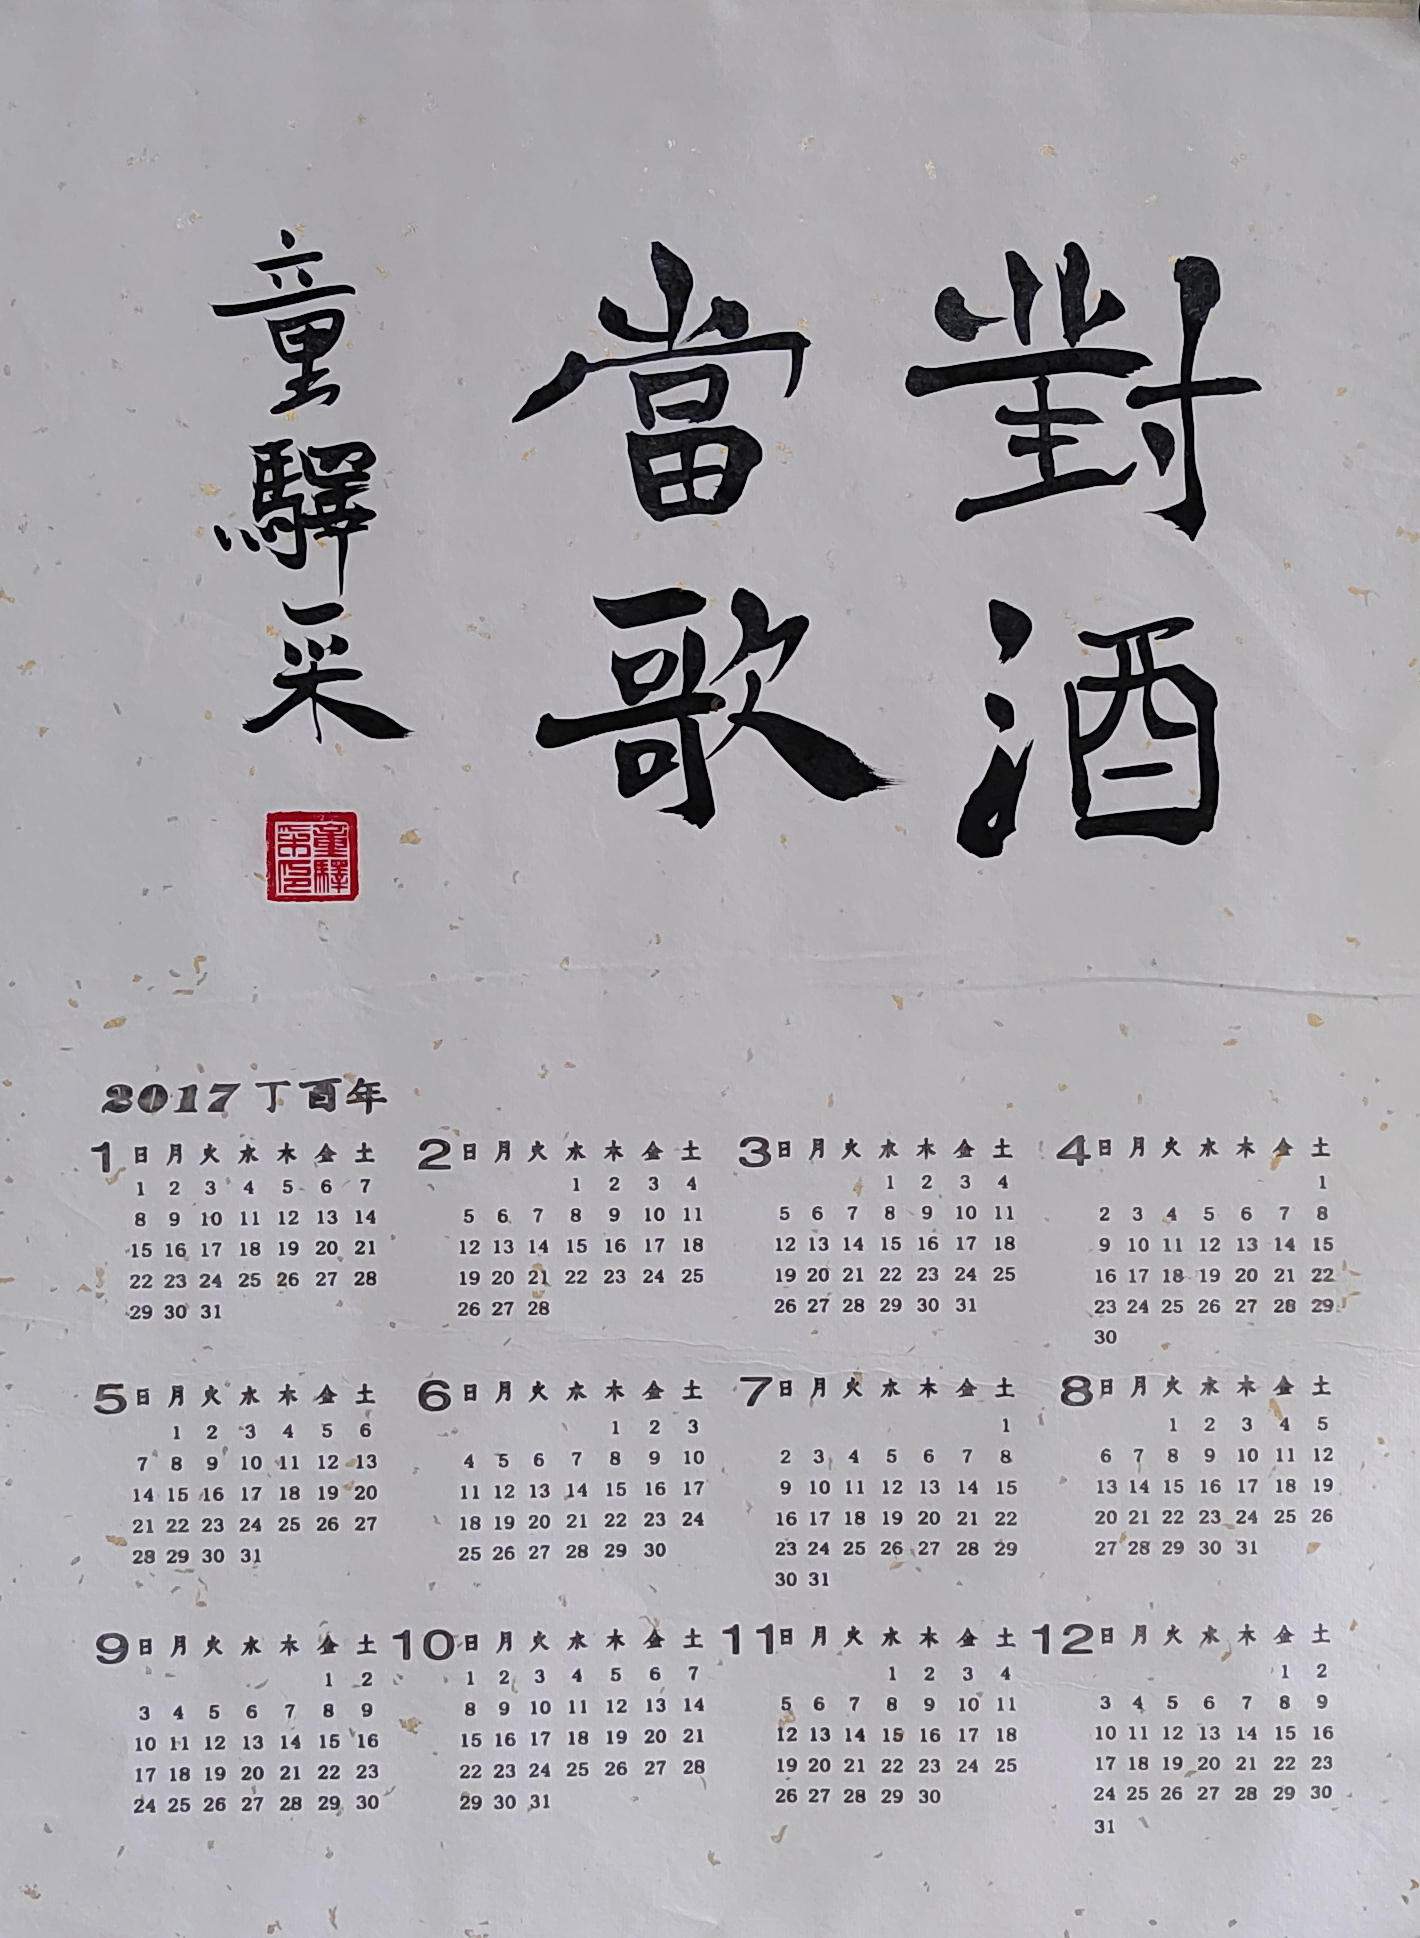 對酒
當歌
童驛采
童驛
采印
2017 丁酉年
1 日 月 火 水 木 金 土
1 2 3 4 5 6 7
8 9 10 11 12 13 14
15 16 17 18 19 20 21
22 23 24 25 26 27 28
29 30 31
2 日 月 火 水 木 金 土
1 2 3 4
5 6 7 8 9 10 11
12 13 14 15 16 17 18
19 20 21 22 23 24 25
26 27 28
3 日 月 火 水 木 金 土
1 2 3 4
5 6 7 8 9 10 11
12 13 14 15 16 17 18
19 20 21 22 23 24 25
26 27 28 29 30 31
4 日 月 火 水 木 金 土
1
2 3 4 5 6 7 8
9 10 11 12 13 14 15
16 17 18 19 20 21 22
23 24 25 26 27 28 29
30
5 日 月 火 水 木 金 土
1 2 3 4 5 6
7 8 9 10 11 12 13
14 15 16 17 18 19 20
21 22 23 24 25 26 27
28 29 30 31
6 日 月 火 水 木 金 土
1 2 3
4 5 6 7 8 9 10
11 12 13 14 15 16 17
18 19 20 21 22 23 24
25 26 27 28 29 30
7 日 月 火 水 木 金 土
1
2 3 4 5 6 7 8
9 10 11 12 13 14 15
16 17 18 19 20 21 22
23 24 25 26 27 28 29
30 31
8 日 月 火 水 木 金 土
1 2 3 4 5
6 7 8 9 10 11 12
13 14 15 16 17 18 19
20 21 22 23 24 25 26
27 28 29 30 31
9 日 月 火 水 木 金 土
1 2
3 4 5 6 7 8 9
10 11 12 13 14 15 16
17 18 19 20 21 22 23
24 25 26 27 28 29 30
10 日 月 火 水 木 金 土
1 2 3 4 5 6 7
8 9 10 11 12 13 14
15 16 17 18 19 20 21
22 23 24 25 26 27 28
29 30 31
11 日 月 火 水 木 金 土
1 2 3 4
5 6 7 8 9 10 11
12 13 14 15 16 17 18
19 20 21 22 23 24 25
26 27 28 29 30
12 日 月 火 水 木 金 土
1 2
3 4 5 6 7 8 9
10 11 12 13 14 15 16
17 18 19 20 21 22 23
24 25 26 27 28 29 30
31